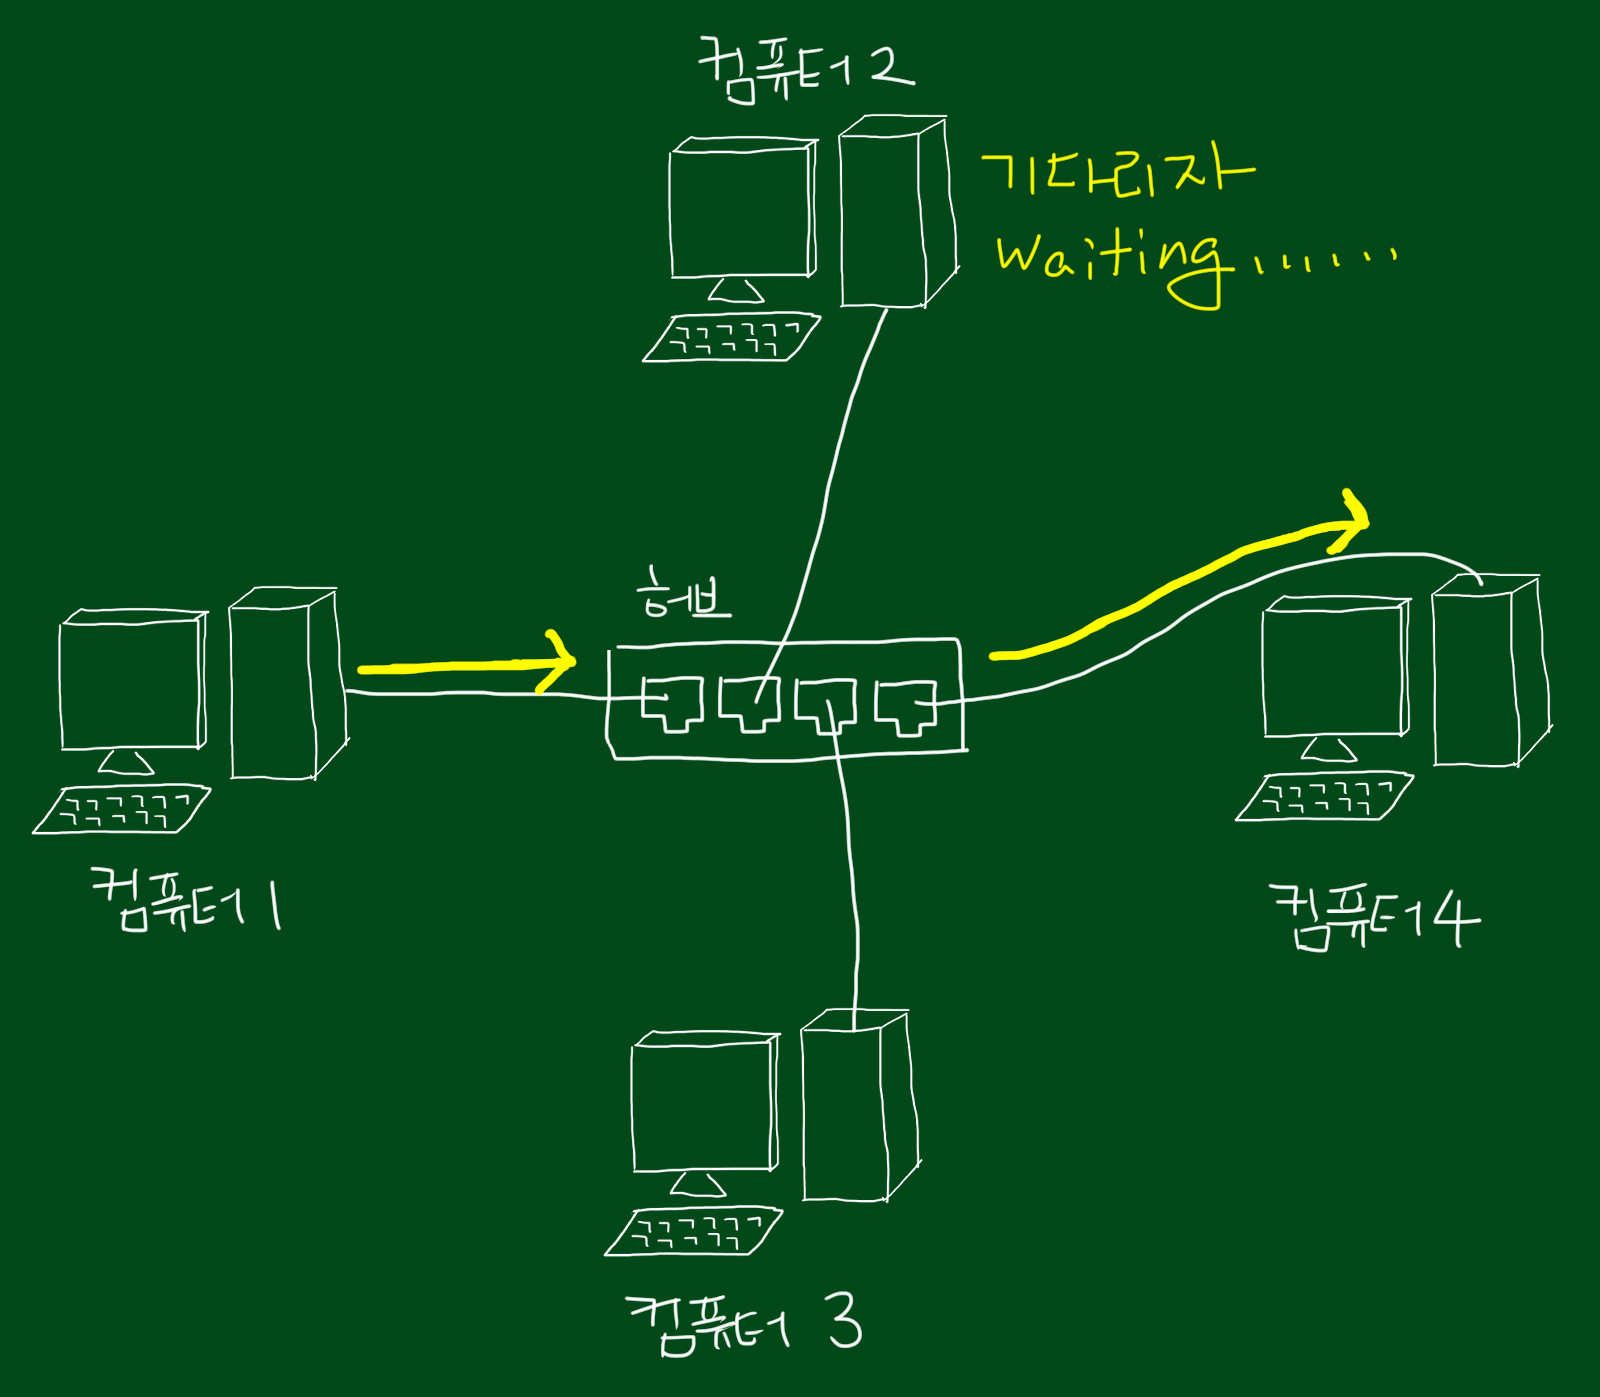 컴퓨터 2
기다리자
waiting......
허브
컴퓨터 1
컴퓨터 4
컴퓨터 3